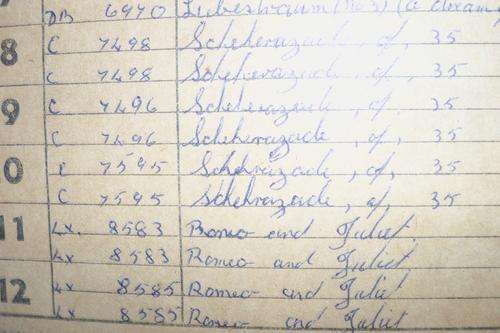 7
DB 6970 Liebestraum (No 3) (a dream
8 C 7498 Scheherazade, of, 35
C 7498 Scheherazade, of, 35
9 C 7496 Scheherazade, of, 35
C 7496 Scheherazade, of, 35
0 C 7595 Scheherazade, of, 35
C 7595 Scheherazade, of, 35
11 Lx. 8583 Romeo and Juliet
Lx 8583 Romeo and Juliet
12 Lx 8585 Romeo and Juliet
Lx 8585 Romeo and Juliet